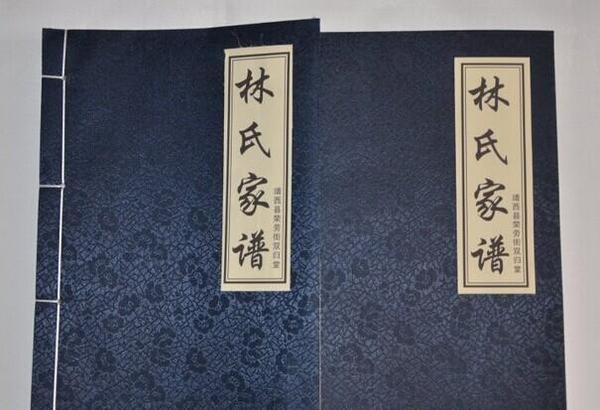 林氏家谱
靖西县荣劳街双归堂
林氏家谱
靖西县荣劳街双归堂